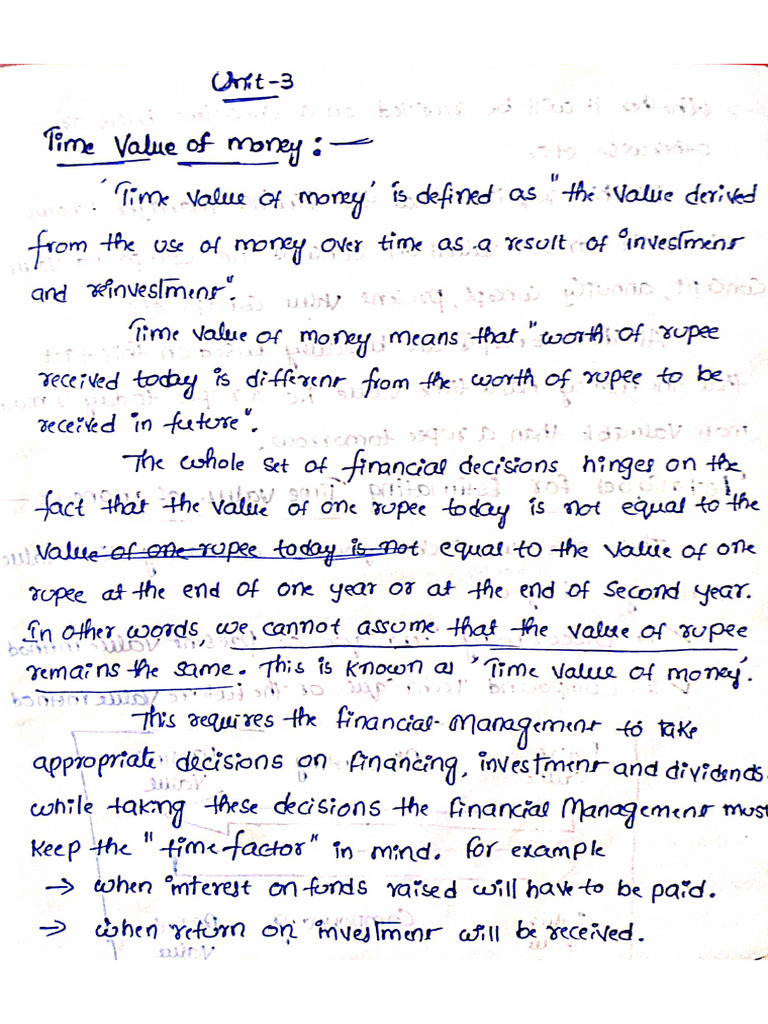 Unit-3
Time Value of money :-
'Time value of money' is defined as "the value derived
from the use of money over time as a result of investment
and reinvestment".
Time value of money means that "worth of rupee
received today is different from the worth of rupee to be
received in future".
The whole set of financial decisions hinges on the
fact that the value of one rupee today is not equal to the
value of one rupee today is not equal to the value of one
rupee at the end of one year or at the end of second year.
In other words, we cannot assume that the value of rupee
remains the same. This is known as 'Time value of money'.
This requires the financial-management to take
appropriate decisions on financing, investment and dividends.
while taking these decisions the financial Management must
keep the "time factor" in mind. for example
→ when interest on funds raised will have to be paid.
→ when return on investment will be received.